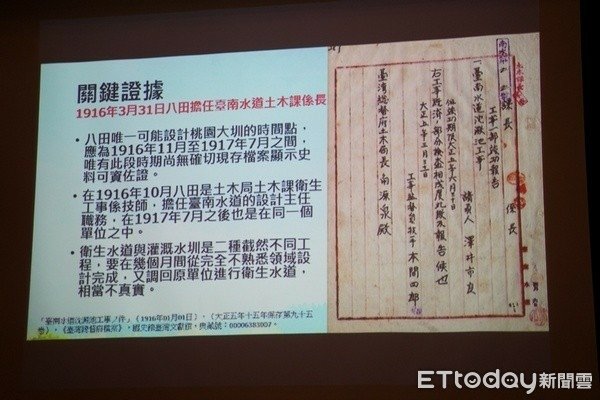 關鍵證據
1916年3月31日八田擔任臺南水道土木課係長
• 八田唯一可能設計桃園大圳的時間點，
應為1916年11月至1917年7月之間，
唯有此段時期尚無確切現存檔案顯示史
料可資佐證。
• 在1916年10月八田是土木局土木課衛生
工事係技師，擔任臺南水道的設計主任
職務，在1917年7月之後也是在同一個
單位之中。
• 衛生水道與灌溉水圳是二種截然不同工
程，要在幾個月間從完全不熟悉領域設
計完成，又調回原單位進行衛生水道，
相當不真實。
「臺南水道沈澱池工事ノ件」（1916年01月01日），〈大正五年十五年保存第九十五
卷〉，《臺灣總督府檔案》，國史館臺灣文獻館，典藏號：00006383007。
課長
係長
工事一部竣功報告
一臺南水道沈澱池工事
請負人 澤井市良
大正五年三月三十一日
臺灣總督府土木局 殿
ETtoday新聞雲